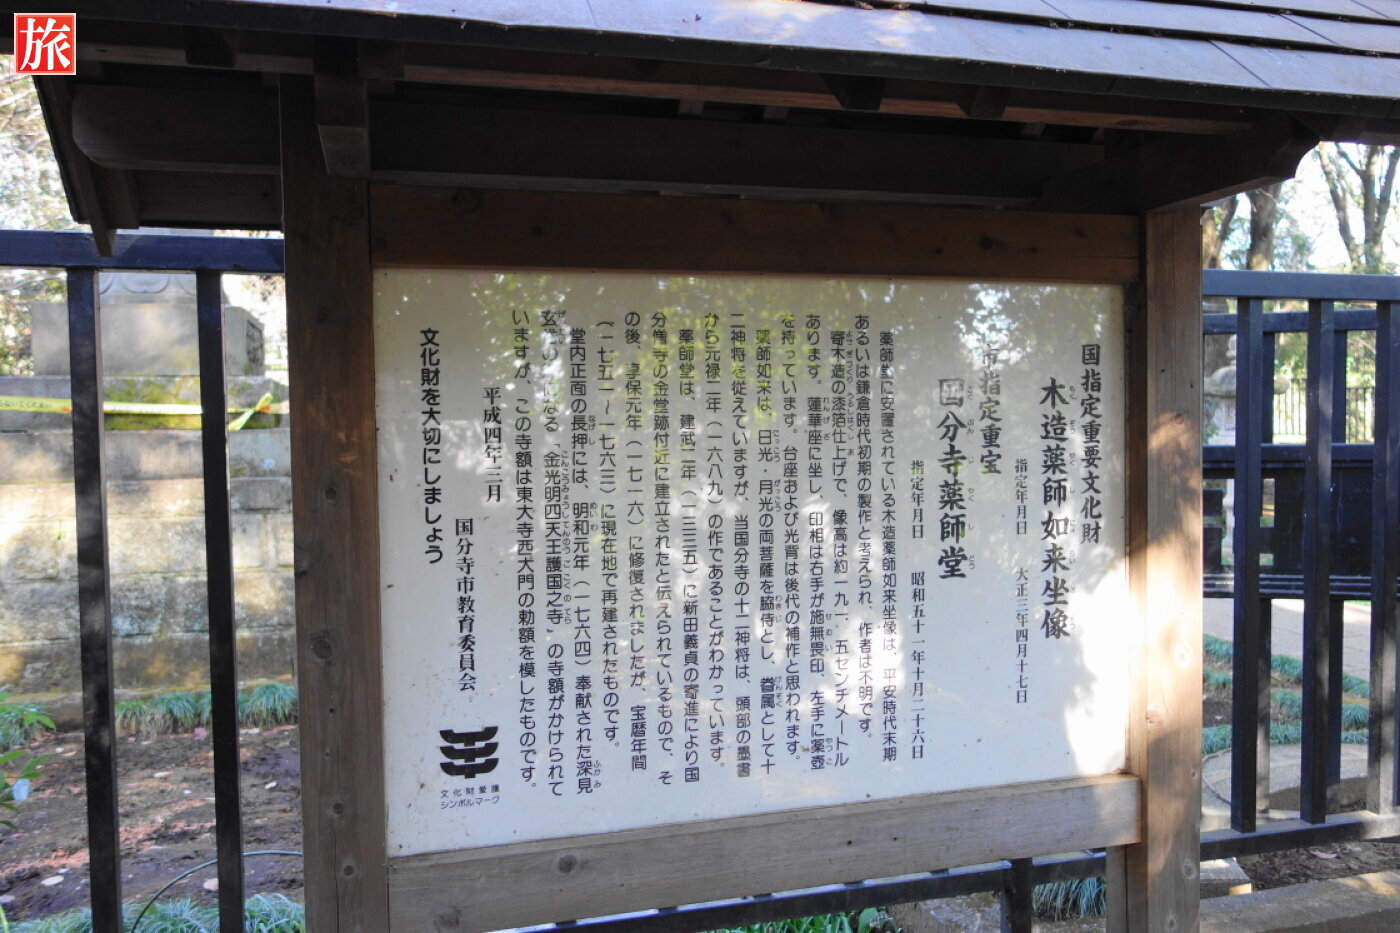 旅
国指定重要文化財
木造薬師如来坐像
指定年月日　大正三年四月十七日
市指定重宝
国分寺薬師堂
指定年月日　昭和五十一年十月二十六日
薬師堂に安置されている木造薬師如来坐像は、平安時代末期
あるいは鎌倉時代初期の製作と考えられ、作者は不明です。
寄木造の漆箔仕上げで、像高は約一九一．五センチメートル
あります。蓮華座に坐し、印相は右手が施無畏印、左手に薬壺
を持っています。台座および光背は後代の補作と思われます。
薬師如来は、日光・月光の両菩薩を脇侍とし、眷属として十
二神将を従えていますが、当国分寺の十二神将は、頭部の墨書
から元禄二年（一六八九）の作であることがわかっています。
薬師堂は、建武二年（一三三五）に新田義貞の寄進により国
分僧寺の金堂跡付近に建立されたと伝えられているもので、そ
の後、享保元年（一七一六）に修復されましたが、宝暦年間
（一七五一～一七六三）に現在地で再建されたものです。
堂内正面の長押には、明和元年（一七六四）奉献された深見
玄岱の筆になる「金光明四天王護国之寺」の寺額がかけられて
いますが、この寺額は東大寺西大門の勅額を模したものです。
平成四年三月
国分寺市教育委員会
文化財を大切にしましょう
文化財愛護
シンボルマーク